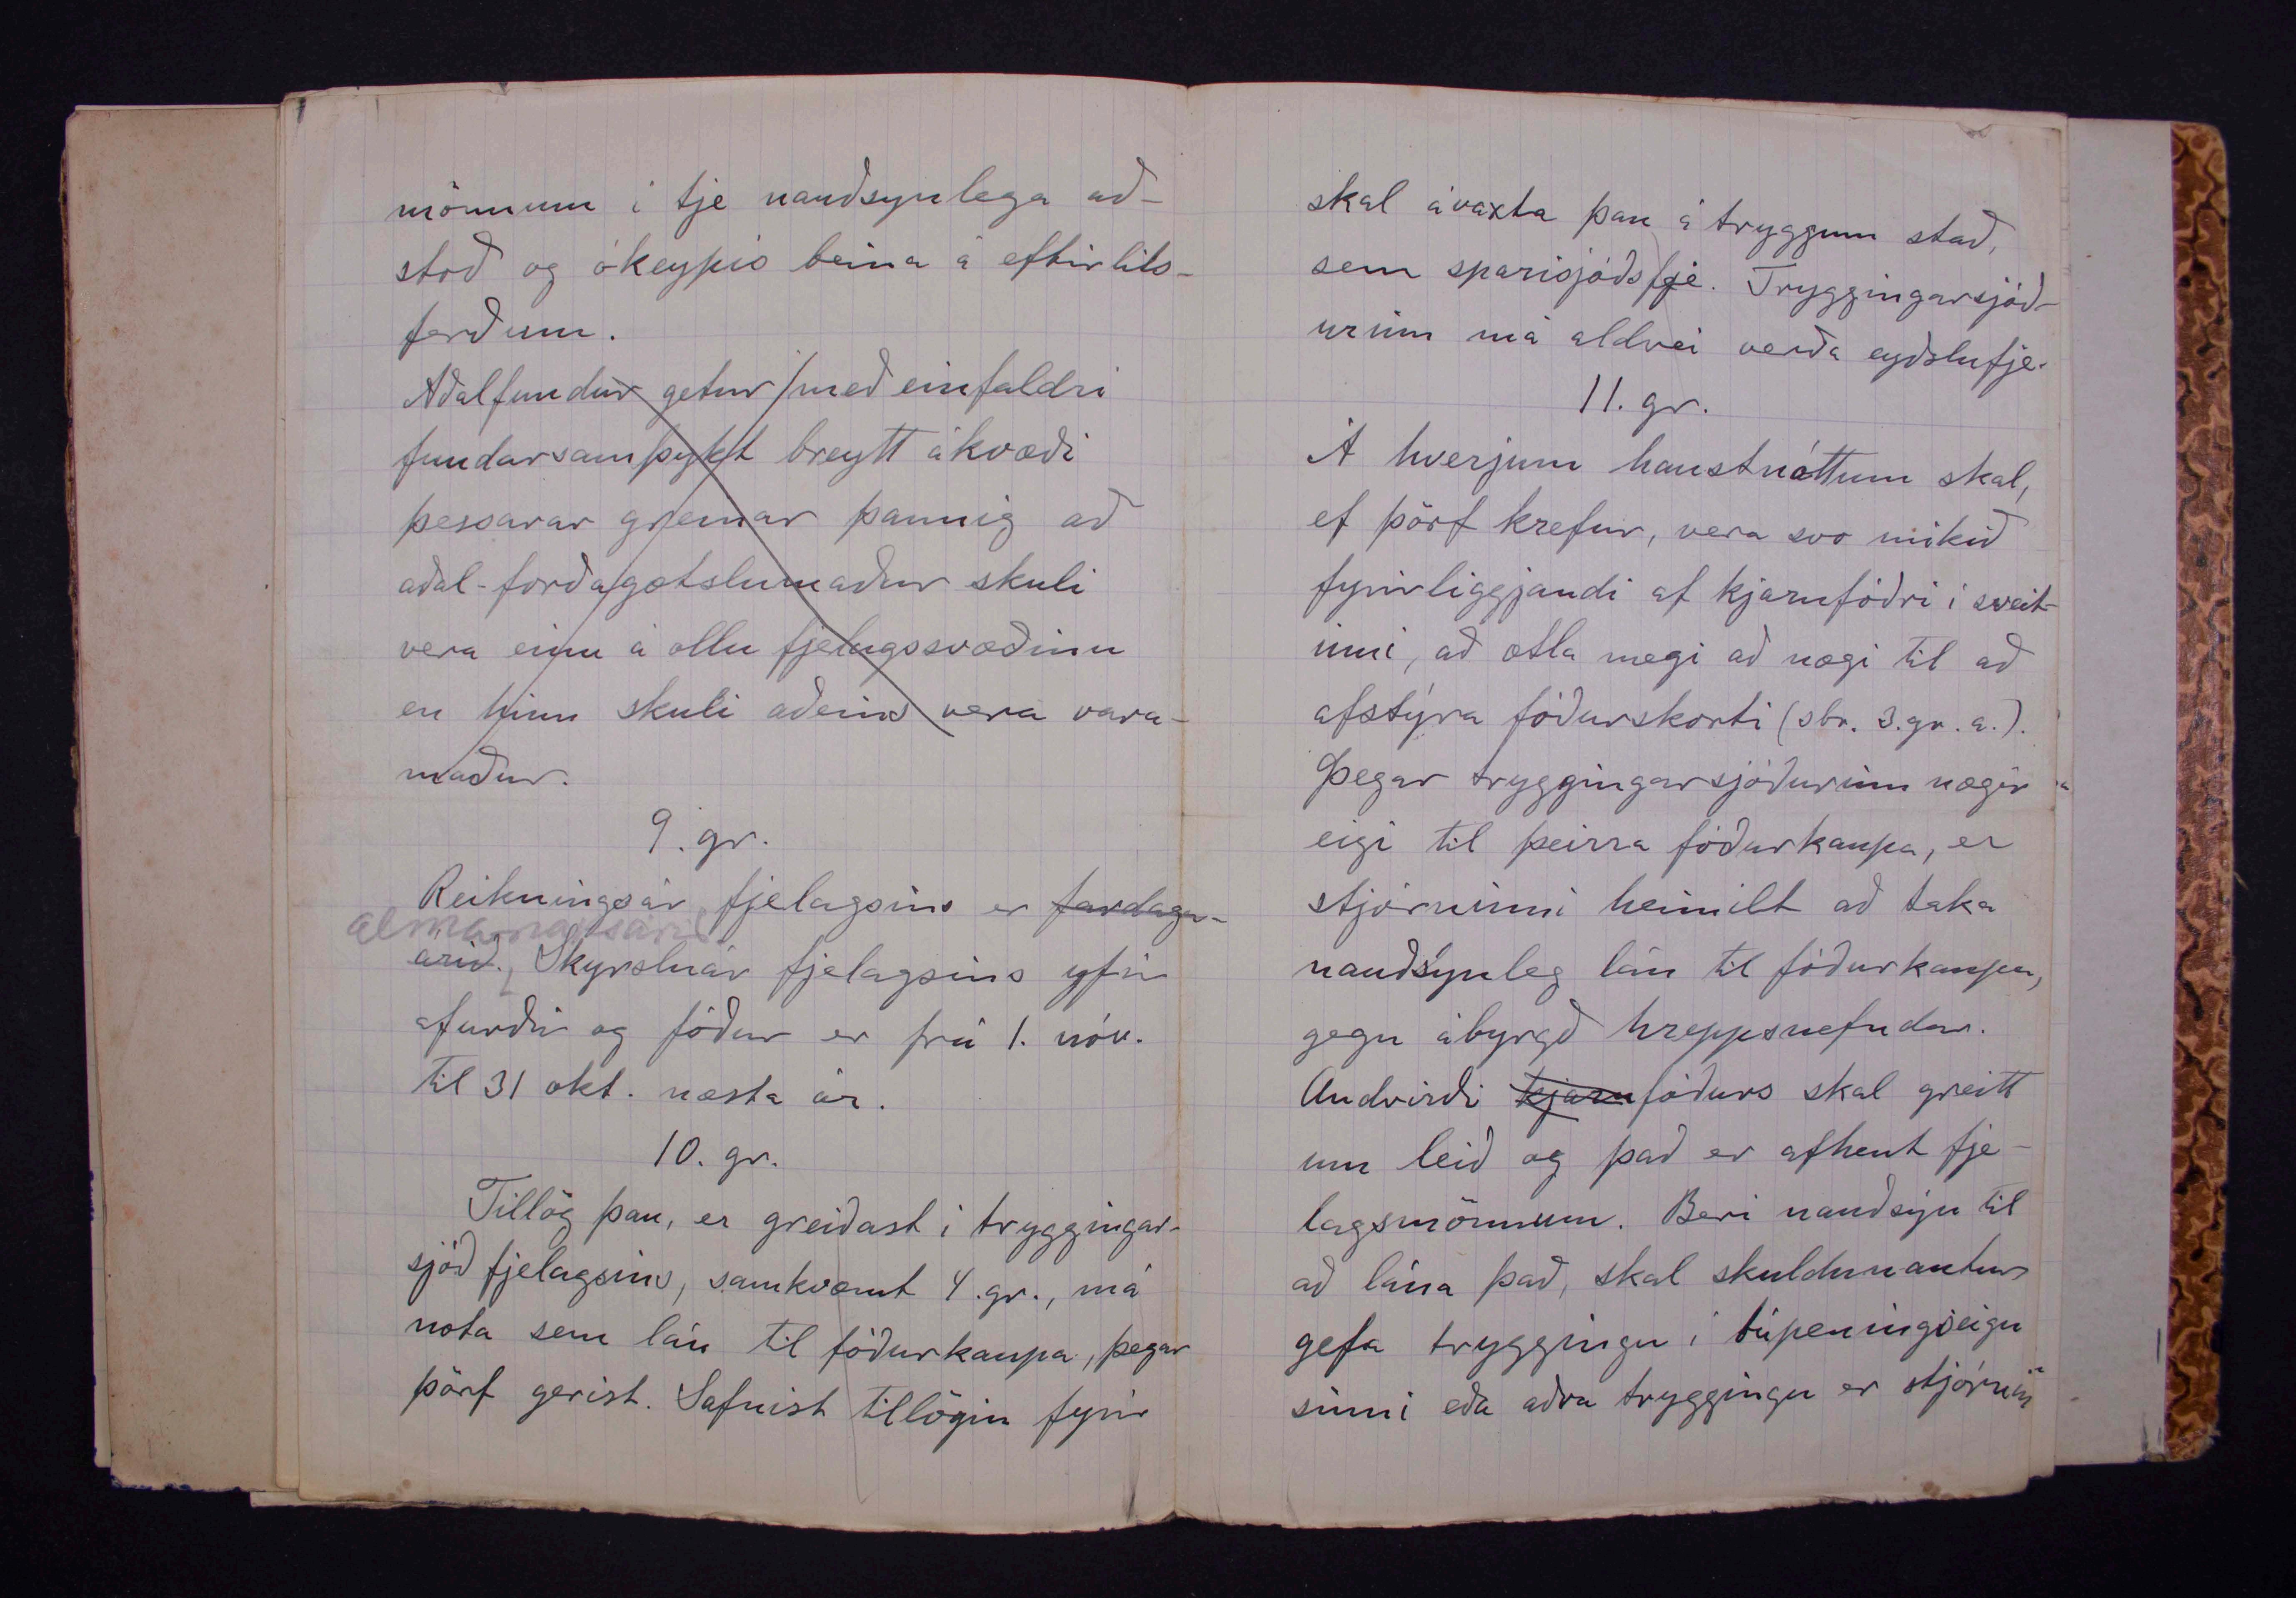 mönnum í tje nauðsynlega að-
stoð og ókeypis beina á eftirlits-
ferðum.
Aðalfundur getur með einfaldri
fundarsamþykt breytt ákvæði
þessarar greinar þannig að
aðal-forðagætslumaður skuli
vera einn á öllu fjelagssvæðinu
en hinn skuli aðeins vera vara-
maður.
9. gr.
Reikningsár fjelagsins er fardaga-
almanaksárið
árið. Skyrsluár fjelagsins yfir
afurðir og fóður er frá 1. nóv.
til 31 okt. næsta ár.
10. gr.
Tillög þau, er greiðast í tryggingar-
sjóð fjelagsins, samkvæmt 4. gr., má
nota sem lán til fóðurkaupa, þegar
þörf gerist. Safnist tillögin fyrir
skal ávaxta þau á tryggum stað,
sem sparisjóðsfje. Tryggingarsjóð-
urinn má aldrei verða eyðslufje.
11. gr.
Á hverjum haustnóttum skal,
ef þörf krefur, vera svo mikið
fyrirliggjandi af kjarnfóðri í sveit-
inni, að ætla megi að nægi til að
afstýra fóðurskorti (sbr. 3. gr. a.).
Þegar tryggingarsjóðurinn nægir
eigi til þeirra fóðurkaupa, er
stjórninni heimilt að taka
nauðsýnleg lán til fóðurkaupa,
gegn ábyrgð hreppsnefndar.
Andvirði kjarnfóðurs skal greitt
um leið og það er afhent fje-
lagsmönnum. Beri nauðsýn til
að lána það, skal skuldunautur
gefa tryggingu í búpeningseign
sinni eða aðra tryggingu er stjórnin